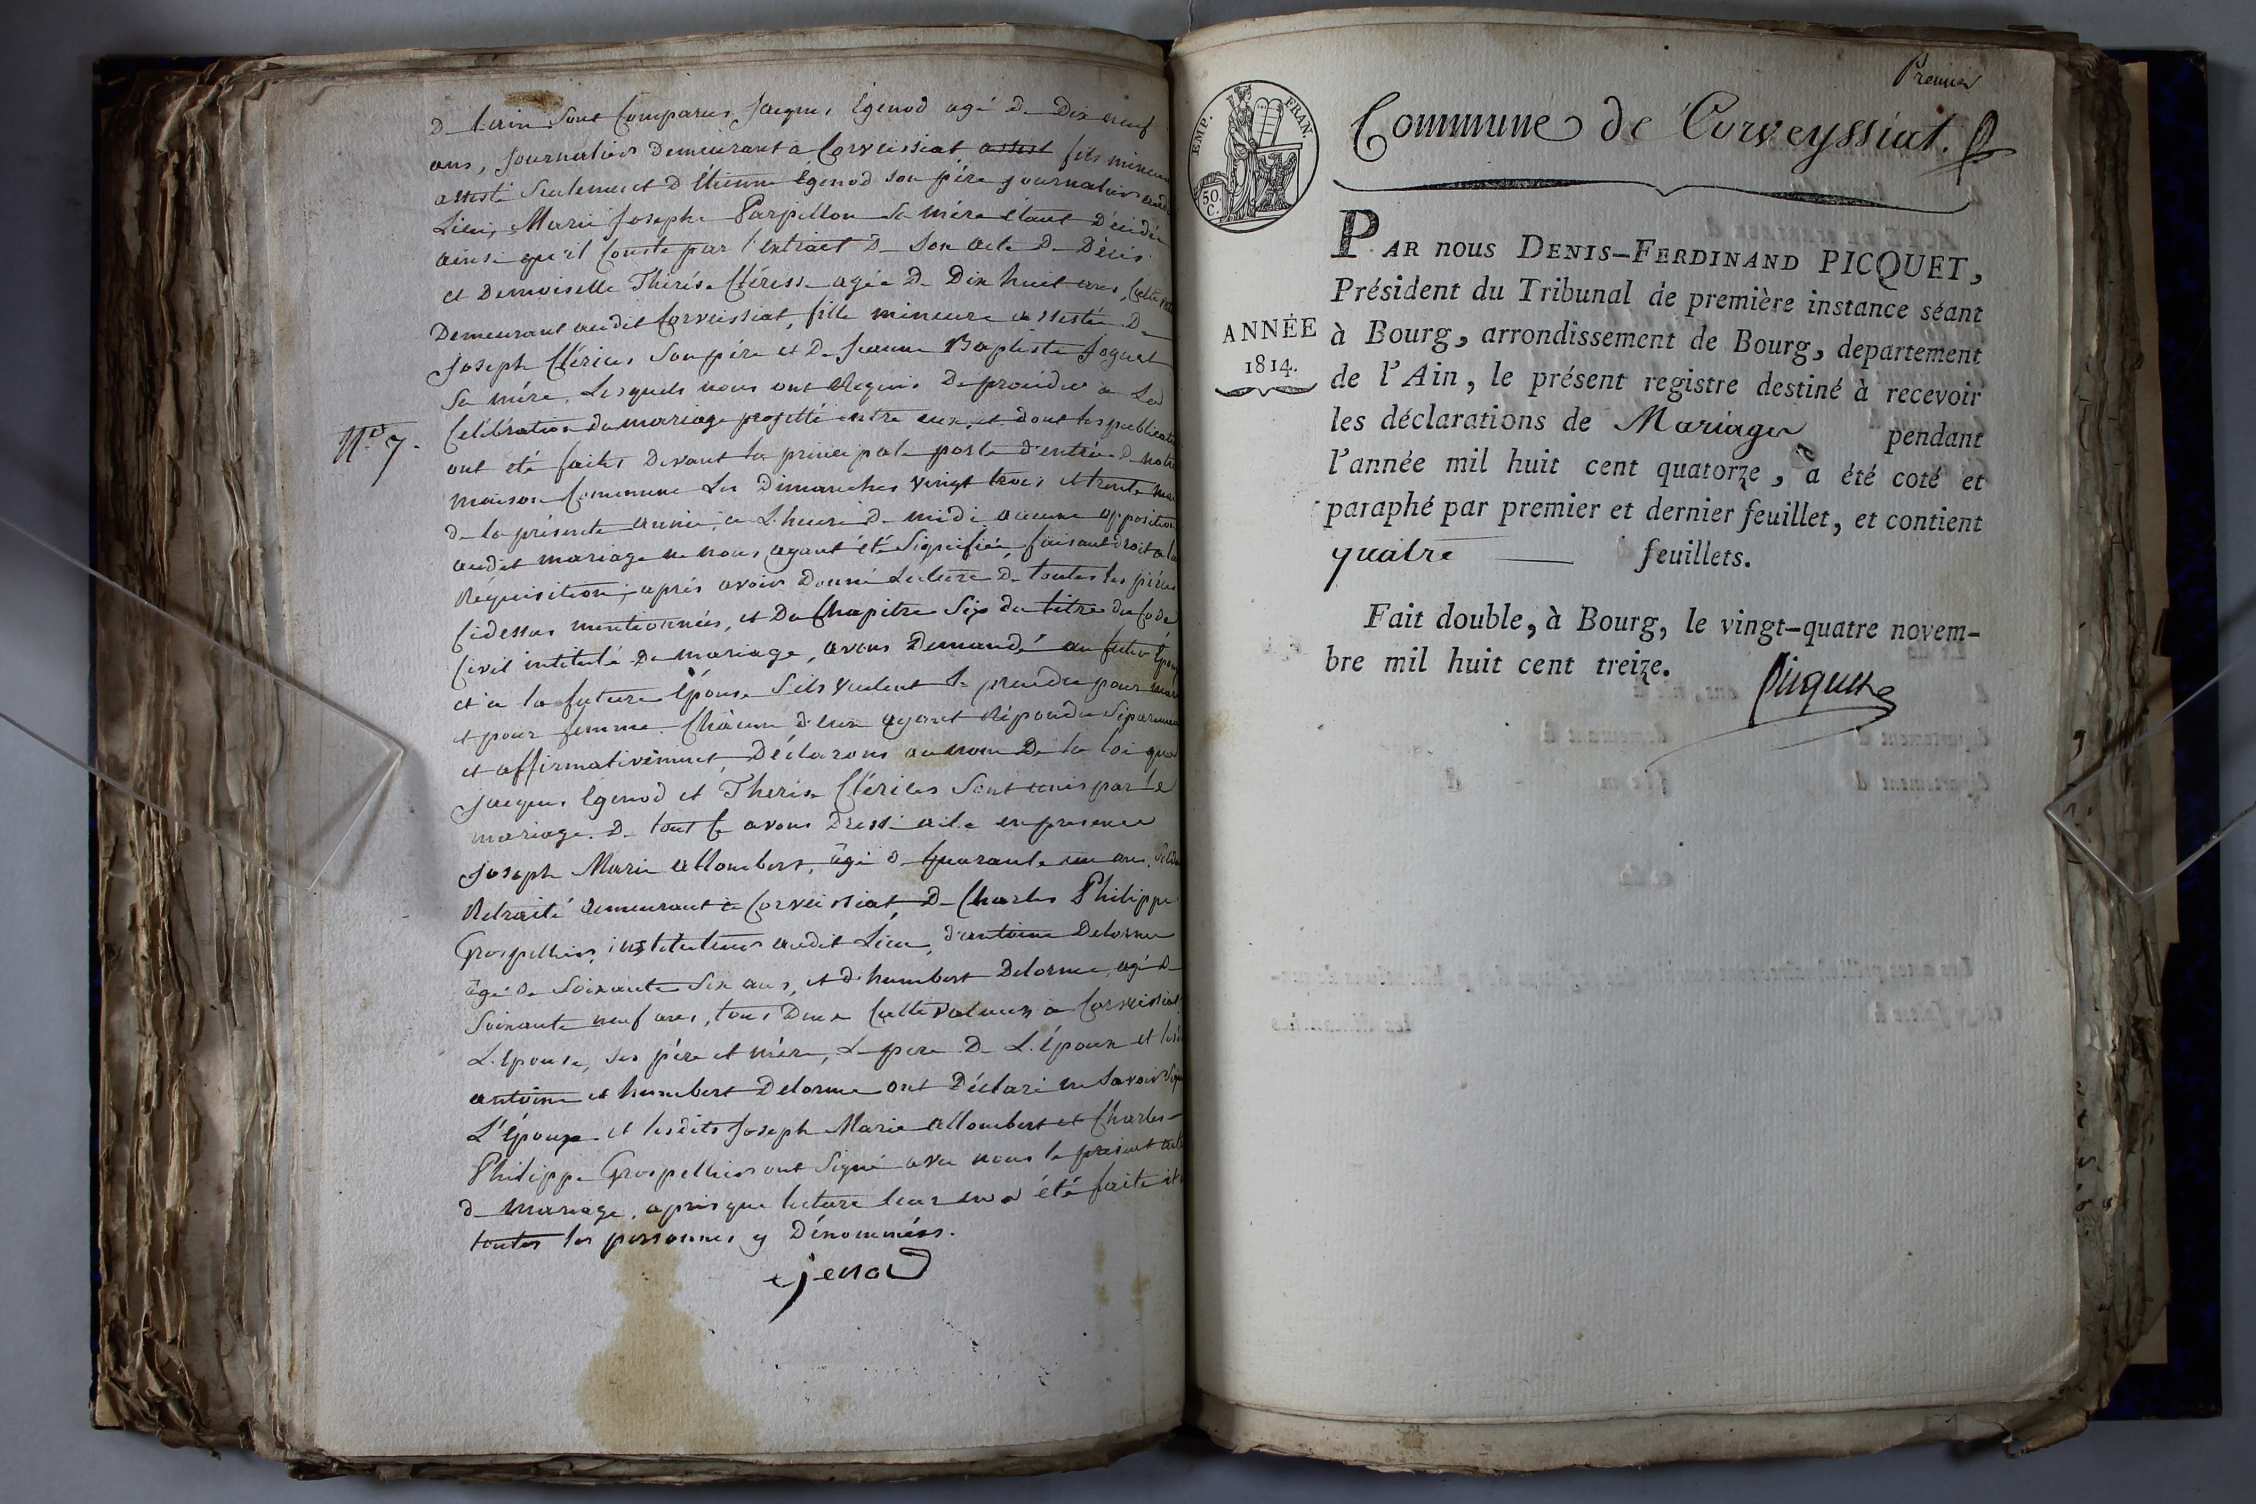 D l'ain Sont Comparus, Jacques Egenod agé D Dix neuf
ans, Journalier Demeurant a Corveissiat assist fils mineur
assisté Seulement d'Etienne Egenod son père journalier audit
Lieu, Marie Josephe Parpillon Sa mère étant Décédée
ainsi qu'il Conste par l'extrait D Son acte D Décès
et Demoiselle Therése Clérisse agée D Dix huit ans,
Demeurant audit Corveissiat, fille mineure assistée D
Joseph Clérices Son père et D Jeanne Baptiste Joguet
Sa mére, Lesquels nous ont Requis De procéder a La
Célébration du mariage projetté entre eux, et dont les publications
ont été faites Devant la principale porte d'entrée D notre
Nº 7.
maison Commune Les Dimanches vingt trois et trente
de la présente année, a L'heure D midi aucune opposition
audit mariage ne nous ayant été Signifiée, faisant droit a la
Réquisition, après avoir Donné Lecture D toutes les pièces
Cidessus mentionnées, et Du Chapitre Six du titre du Code
Civil intitulé Du mariage, avons Demandé au futur Epoux
et a la future Epouse S'ils veulent Se prendre pour mari
et pour femme. Chacun d'eux ayant Répondu Séparement
et affirmativement, Déclarons au nom De la loi que
Jacques Egenod et Therése Clérices Sont unis par le
mariage. D tout Ce avons Dressé acte en presence
Joseph Marie allombert, agé D Quarante un ans,
Retraité demeurant a Corveissiat, D Charles Philippe
Grospellier, instituteur audit Lieu, d'antoine Delorme
âgé De Soixante Six ans, et d'humbert Delorme, agé D
Soixante neuf ans, tous Deux Cultivateurs a Corveissiat,
L'épouse, Ses père et mére, Le pere D L'époux et
antoine et humbert Delorme ont Déclaré ne Savoir Signer
L'époux et lesdits Joseph Marie allombert et Charles
Philippe Grospellier ont Signé avec nous le présent acte
D mariage, apres que lecture leur en a été faite et a
toutes les personnes y Dénommées.
ejenod
Premier
Commune de Corveyssiat.
EMP. FRAN.
50 C.
ANNÉE
1814.
PAR nous DENIS-FERDINAND PICQUET,
Président du Tribunal de première instance séant
à Bourg, arrondissement de Bourg, departement
de l'Ain, le présent registre destiné à recevoir
les déclarations de Mariages pendant
l'année mil huit cent quatorze, a été coté et
paraphé par premier et dernier feuillet, et contient
quatre feuillets.
Fait double, à Bourg, le vingt-quatre novem-
bre mil huit cent treize.
Picquet